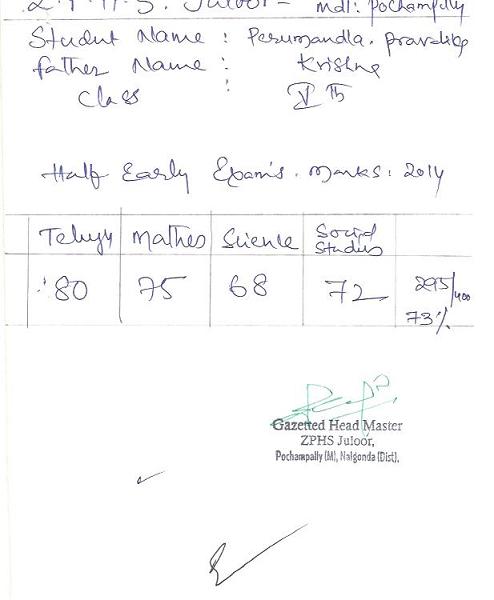 Z.P.H.S. Juloor - Mdl: Pochampally
Student Name : Perumandla. pravalika
father Name : Krishna
Class : V th
Half Early Exams. Marks: 2014
Telugu Mathes Science Social Studies
80 75 68 72 295/400
73%
Gazetted Head Master
ZPHS Juloor,
Pochampally (M), Nalgonda (Dist).